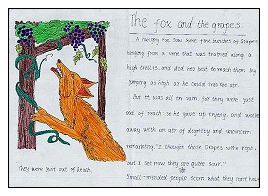 The fox and the grapes.
A hungry fox saw some fine bunches of Grapes
hanging from a vine that was trained along a
high trellis, and did his best to reach them by
jumping as high as he could into the air.
But it was all in vain, for they were just
out of reach: so he gave up trying, and walked
away with an air of dignity and unconcern,
remarking, "I thought those Grapes were ripe,
but I see now they are quite sour."
Small-minded people scorn what they can't have
They were just out of reach.